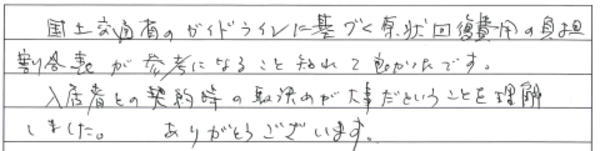 国土交通省のガイドラインに基づく原状回復費用の負担
割合表が参考になること知れて良かったです。
入居者との契約時の取決めが大事だということを理解
しました。 ありがとうございます。